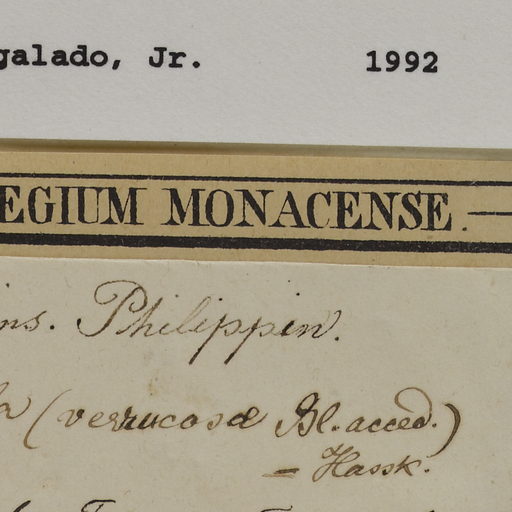 galado, Jr. 1992
EGIUM MONACENSE.
ins. Philippin.
(verrucosæ Bl. accéd.)
= Hassk.